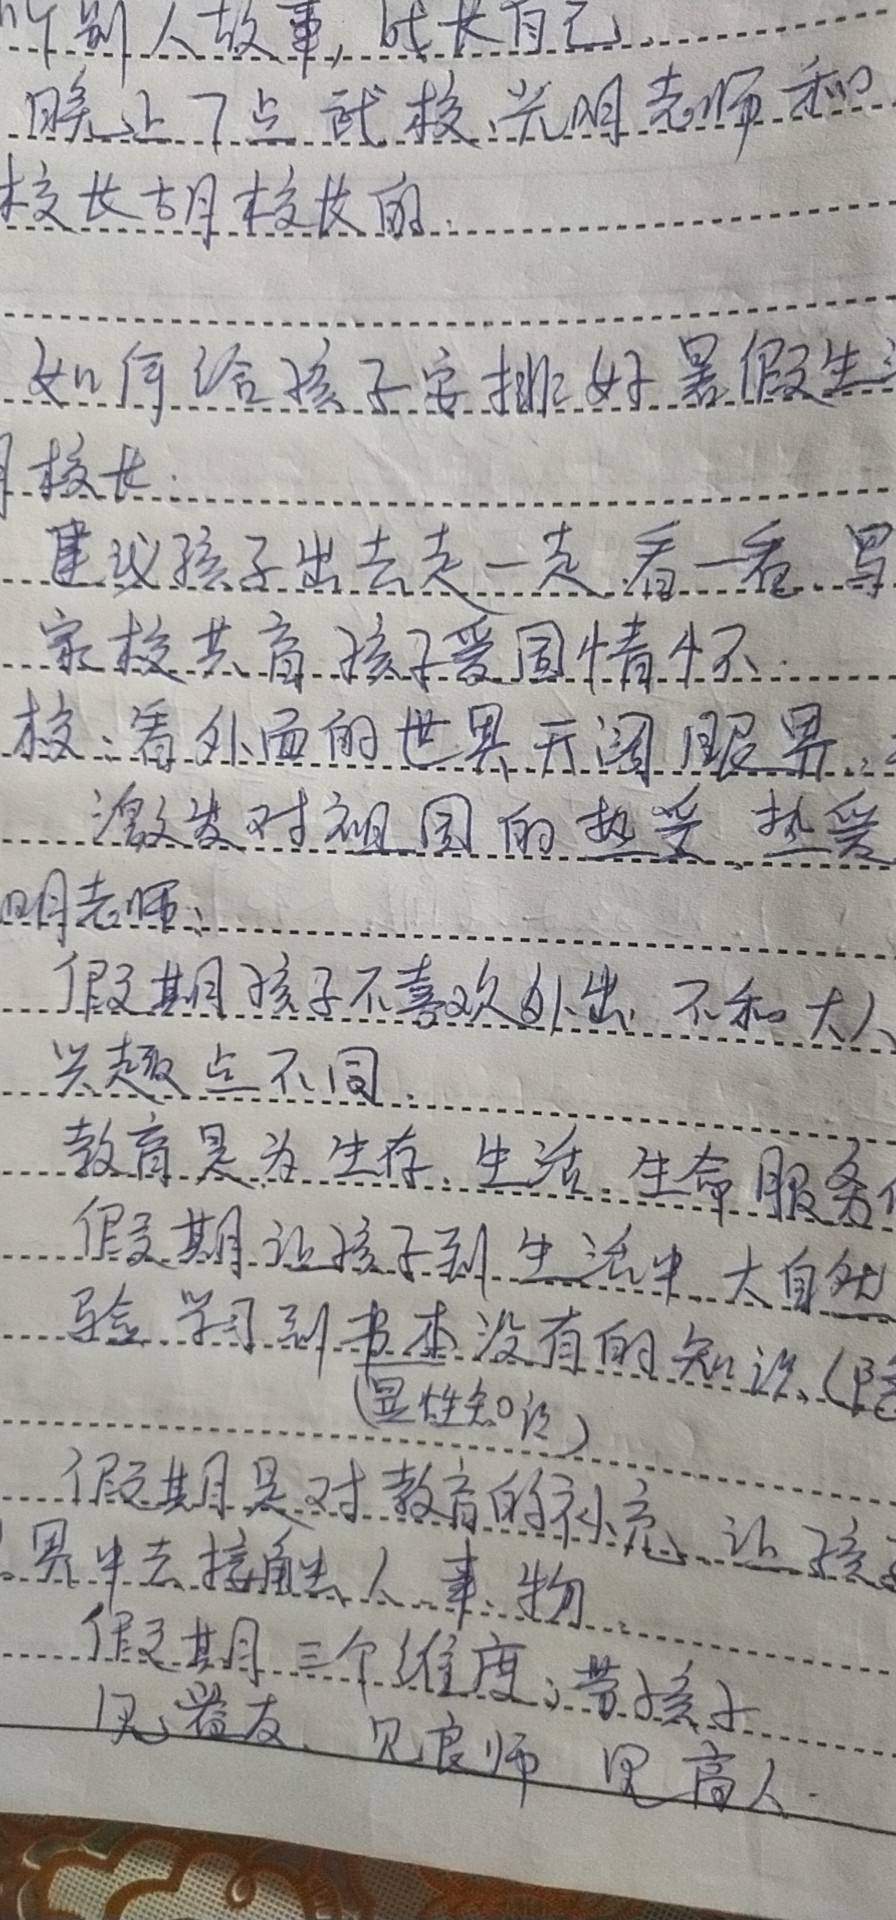 听别人故事，成长自己、
晚上7点 武校、光明老师和
校长胡校长的、
如何给孩子安排好暑假生活
校长、
建议孩子出去走一走 看一看、写
家校共育 孩子爱国情怀、
校：看外面的世界 开阔眼界、
激发对祖国的热爱、热爱
明老师：
假期孩子不喜欢外出、不和大人
兴趣点不同、
教育是为生存、生活、生命服务
假期让孩子到生活中、大自然
验 学习到书本没有的知识、(隐
(显性知识)
假期是对教育的补充、让孩子
界中去接触人、事、物、
假期三个维度：带孩子
见益友、见良师 见高人、